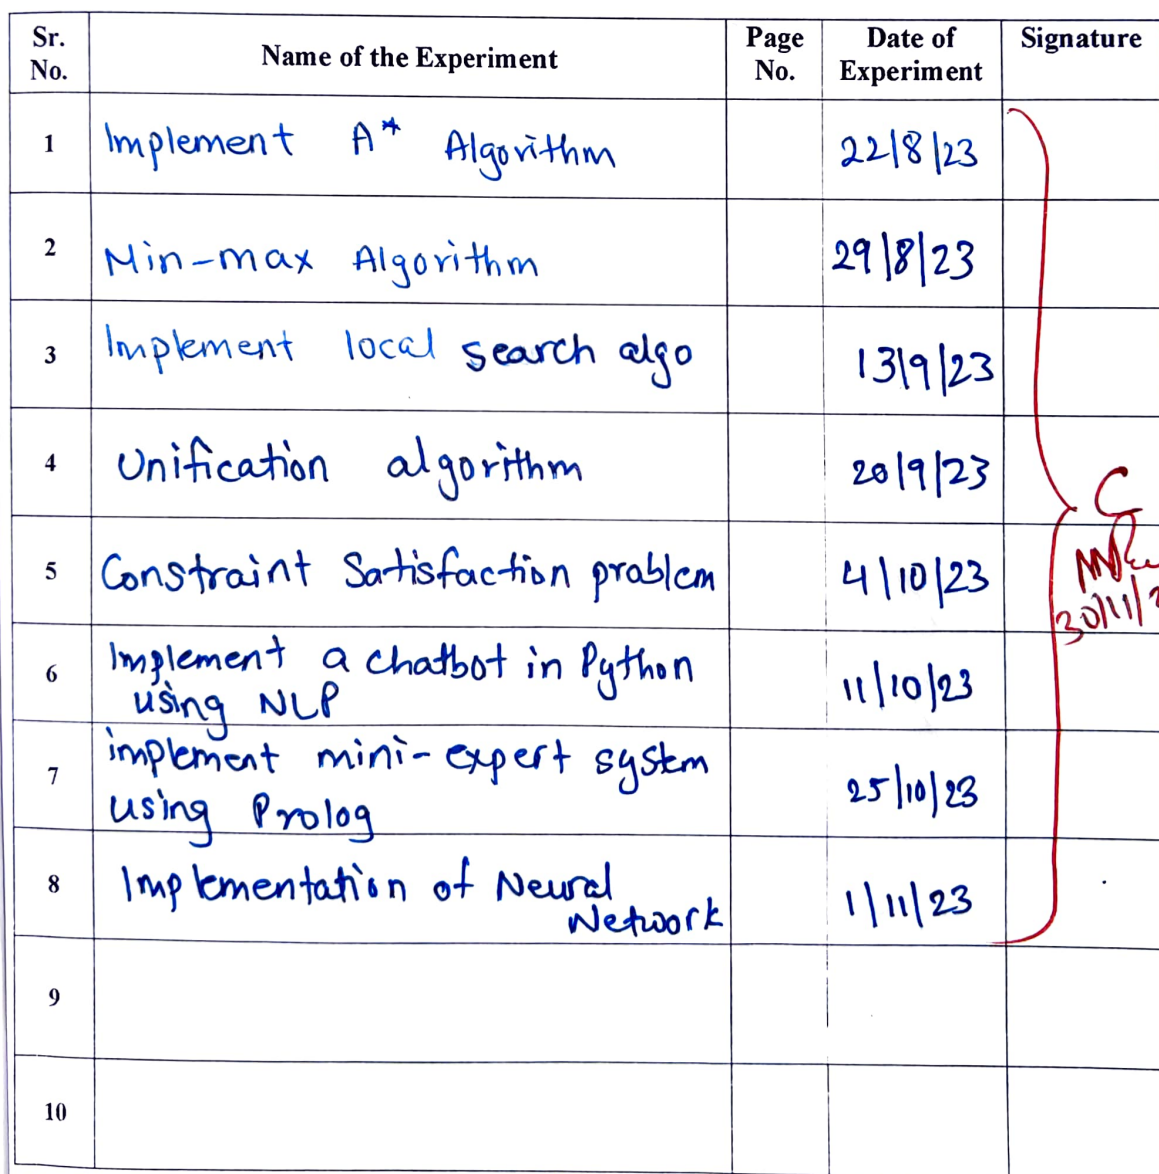 Sr. No. Name of the Experiment Page No. Date of Experiment Signature
1 Implement A* Algorithm 22/8/23
2 Min-max Algorithm 29/8/23
3 Implement local search algo 13/9/23
4 Unification algorithm 20/9/23
5 Constraint Satisfaction problem 4/10/23
30/11/2
6 Implement a chatbot in Python
using NLP 11/10/23
7 implement mini-expert system
using Prolog 25/10/23
8 Implementation of Neural
Network 1/11/23
9
10